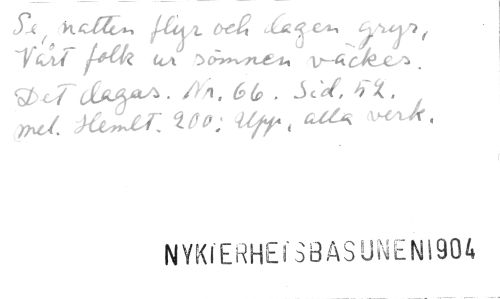 Se, natten flyr och dagen gryr,
Vårt folk ur sömnen väckes.
Det dagas. Nr. 66. Sid. 52.
mel. Hemlt. 200: Upp, alla verk.
NYKTERHETSBASUNEN 1904